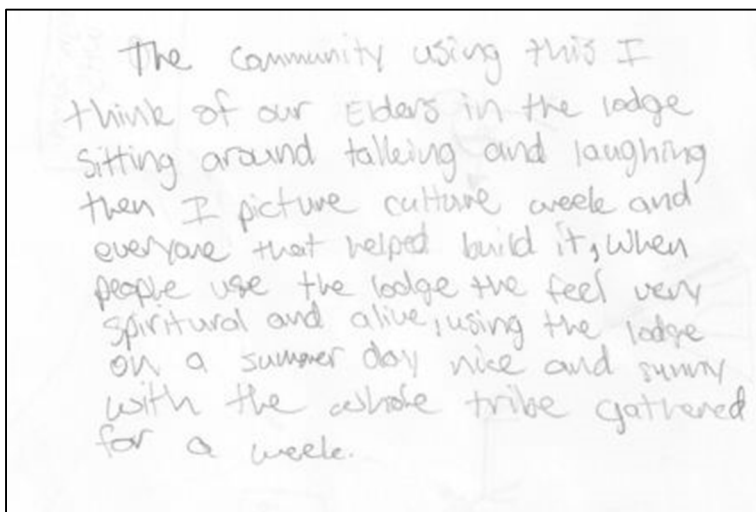 The community using this I
think of our Elders in the lodge
sitting around talking and laughing
then I picture culture week and
everyone that helped build it, when
people use the lodge the feel very
spiritural and alive, using the lodge
on a summer day nice and sunny
with the whole tribe gathered
for a week.